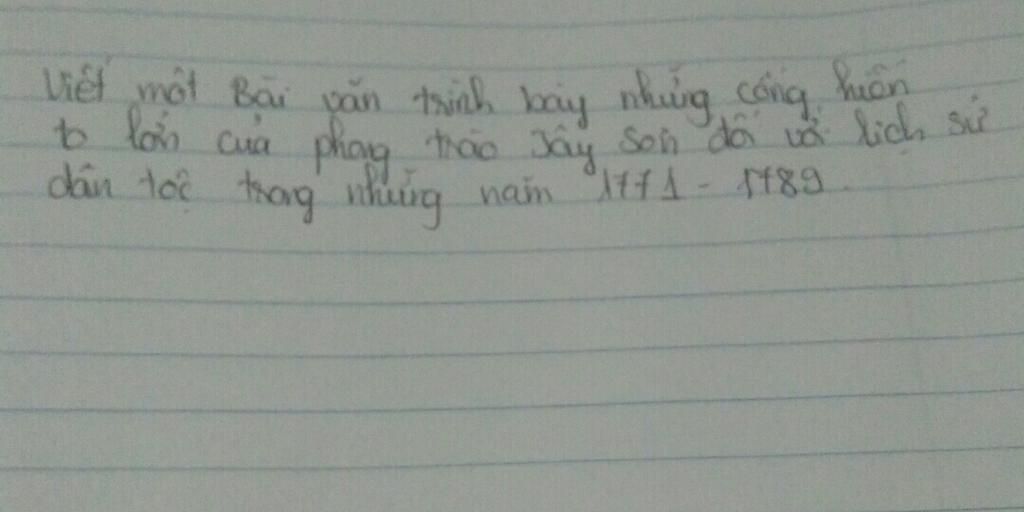 Viết một Bài văn trình bày những cống hiến
to lớn của phong trào Tây Sơn đối với lịch sử
dân tộc trong những năm 1771 - 1789.